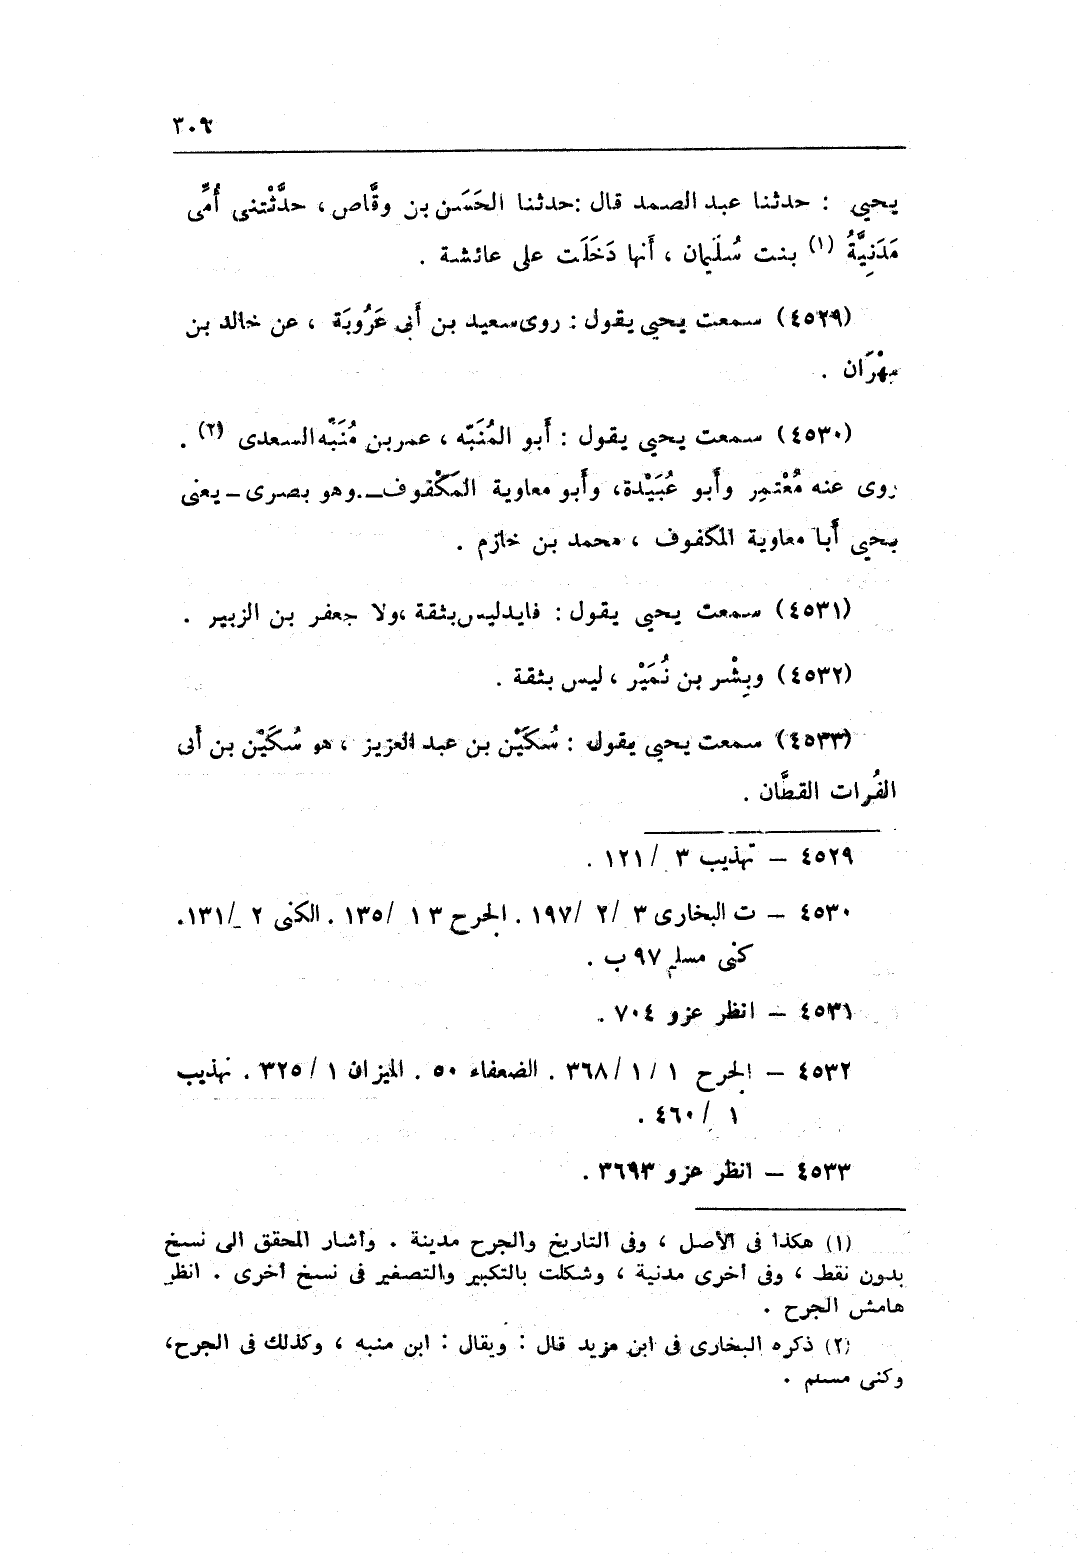 ٣٠٩
يحيى : حدثنا عبد الصمد قال :حدثنا الحَسَن بن وقَّاص ، حدَّثْتنى أُمِّى
مَدَنِيَّةُ (١) بنت سُلَيمان ، أَنها دَخَلَت على عائشة .
(٤٥٢٩) سمعت يحيى يقول : روى سعيد بن أَبى عَرُوبَة ، عن خالد بن
مِهْرَان .
(٤٥٣٠) سمعت يحيى يقول : أَبو المُنَبّه ، عمر بن مُنَبِّه السعدى (٢) .
روى عنه مُعْتمِر وأَبو عُبَيْدة، وأَبو معاوية المَكْفوف ــ وهو بصرى ــ يعنى
يحيى أَبا معاوية المكفوف ، محمد بن خازم .
(٤٥٣١) سمعت يحيى يقول : فايد ليس بثقة ،ولا جعفر بن الزبير .
(٤٥٣٢) وبِشْر بن نُمَيْر ، ليس بثقة .
(٤٥٣٣) سمعت يحيى يقول : سُكَيْن بن عبد العزيز ، هو سُكَيْن بن أَبى
الفُرات القطَّان .
٤٥٢٩ – تهذيب ٣ /١٢١ .
٤٥٣٠ – ت البخارى ٣ /٢ /١٩٧ . الجرح ٣ ١ /١٣٥ . الكنى ٢ /١٣١.
كنى مسلم ٩٧ ب .
٤٥٣١ – انظر عزو ٧٠٤ .
٤٥٣٢ – الجرح ١ /١ /٣٦٨ . الضعفاء ٥٠ . الميزان ١ /٣٢٥ . تهذيب
١ /٤٦٠ .
٤٥٣٣ – انظر عزو ٣٦٩٣ .
(١) هكذا فى الأصل ، وفى التاريخ والجرح مدينة . وأشار المحقق الى نسخ
بدون نقط ، وفى أخرى مدنية ، وشكلت بالتكبير والتصغير فى نسخ أخرى . انظر
هامش الجرح .
(٢) ذكره البخارى فى ابن مزيد قال : ويقال : ابن منبه ، وكذلك فى الجرح،
وكنى مسلم .